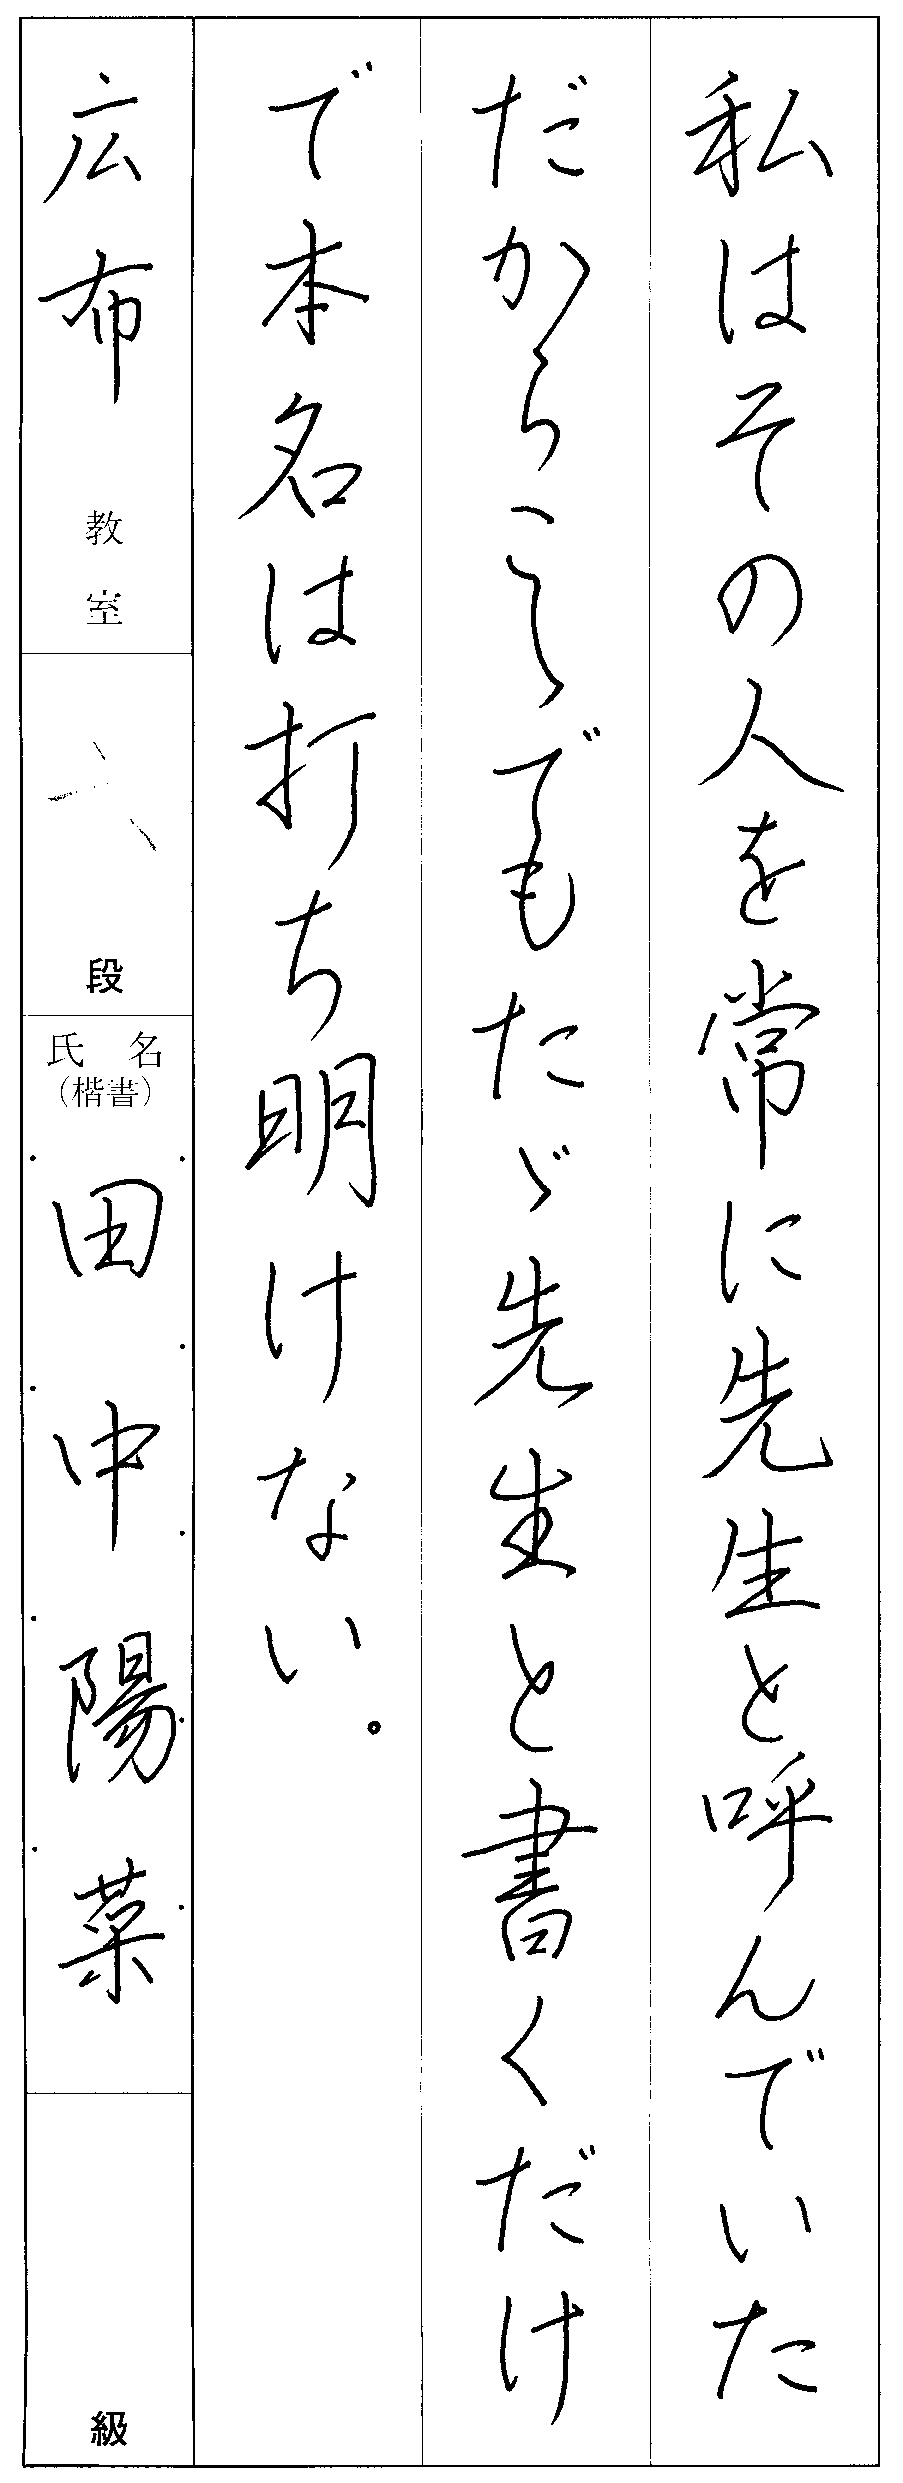 私はその人を常に先生と呼んでいた
だからこゝでもたゞ先生と書くだけ
で本名は打ち明けない。
広布 教室
六 段
氏名
(楷書)
田中陽菜
級